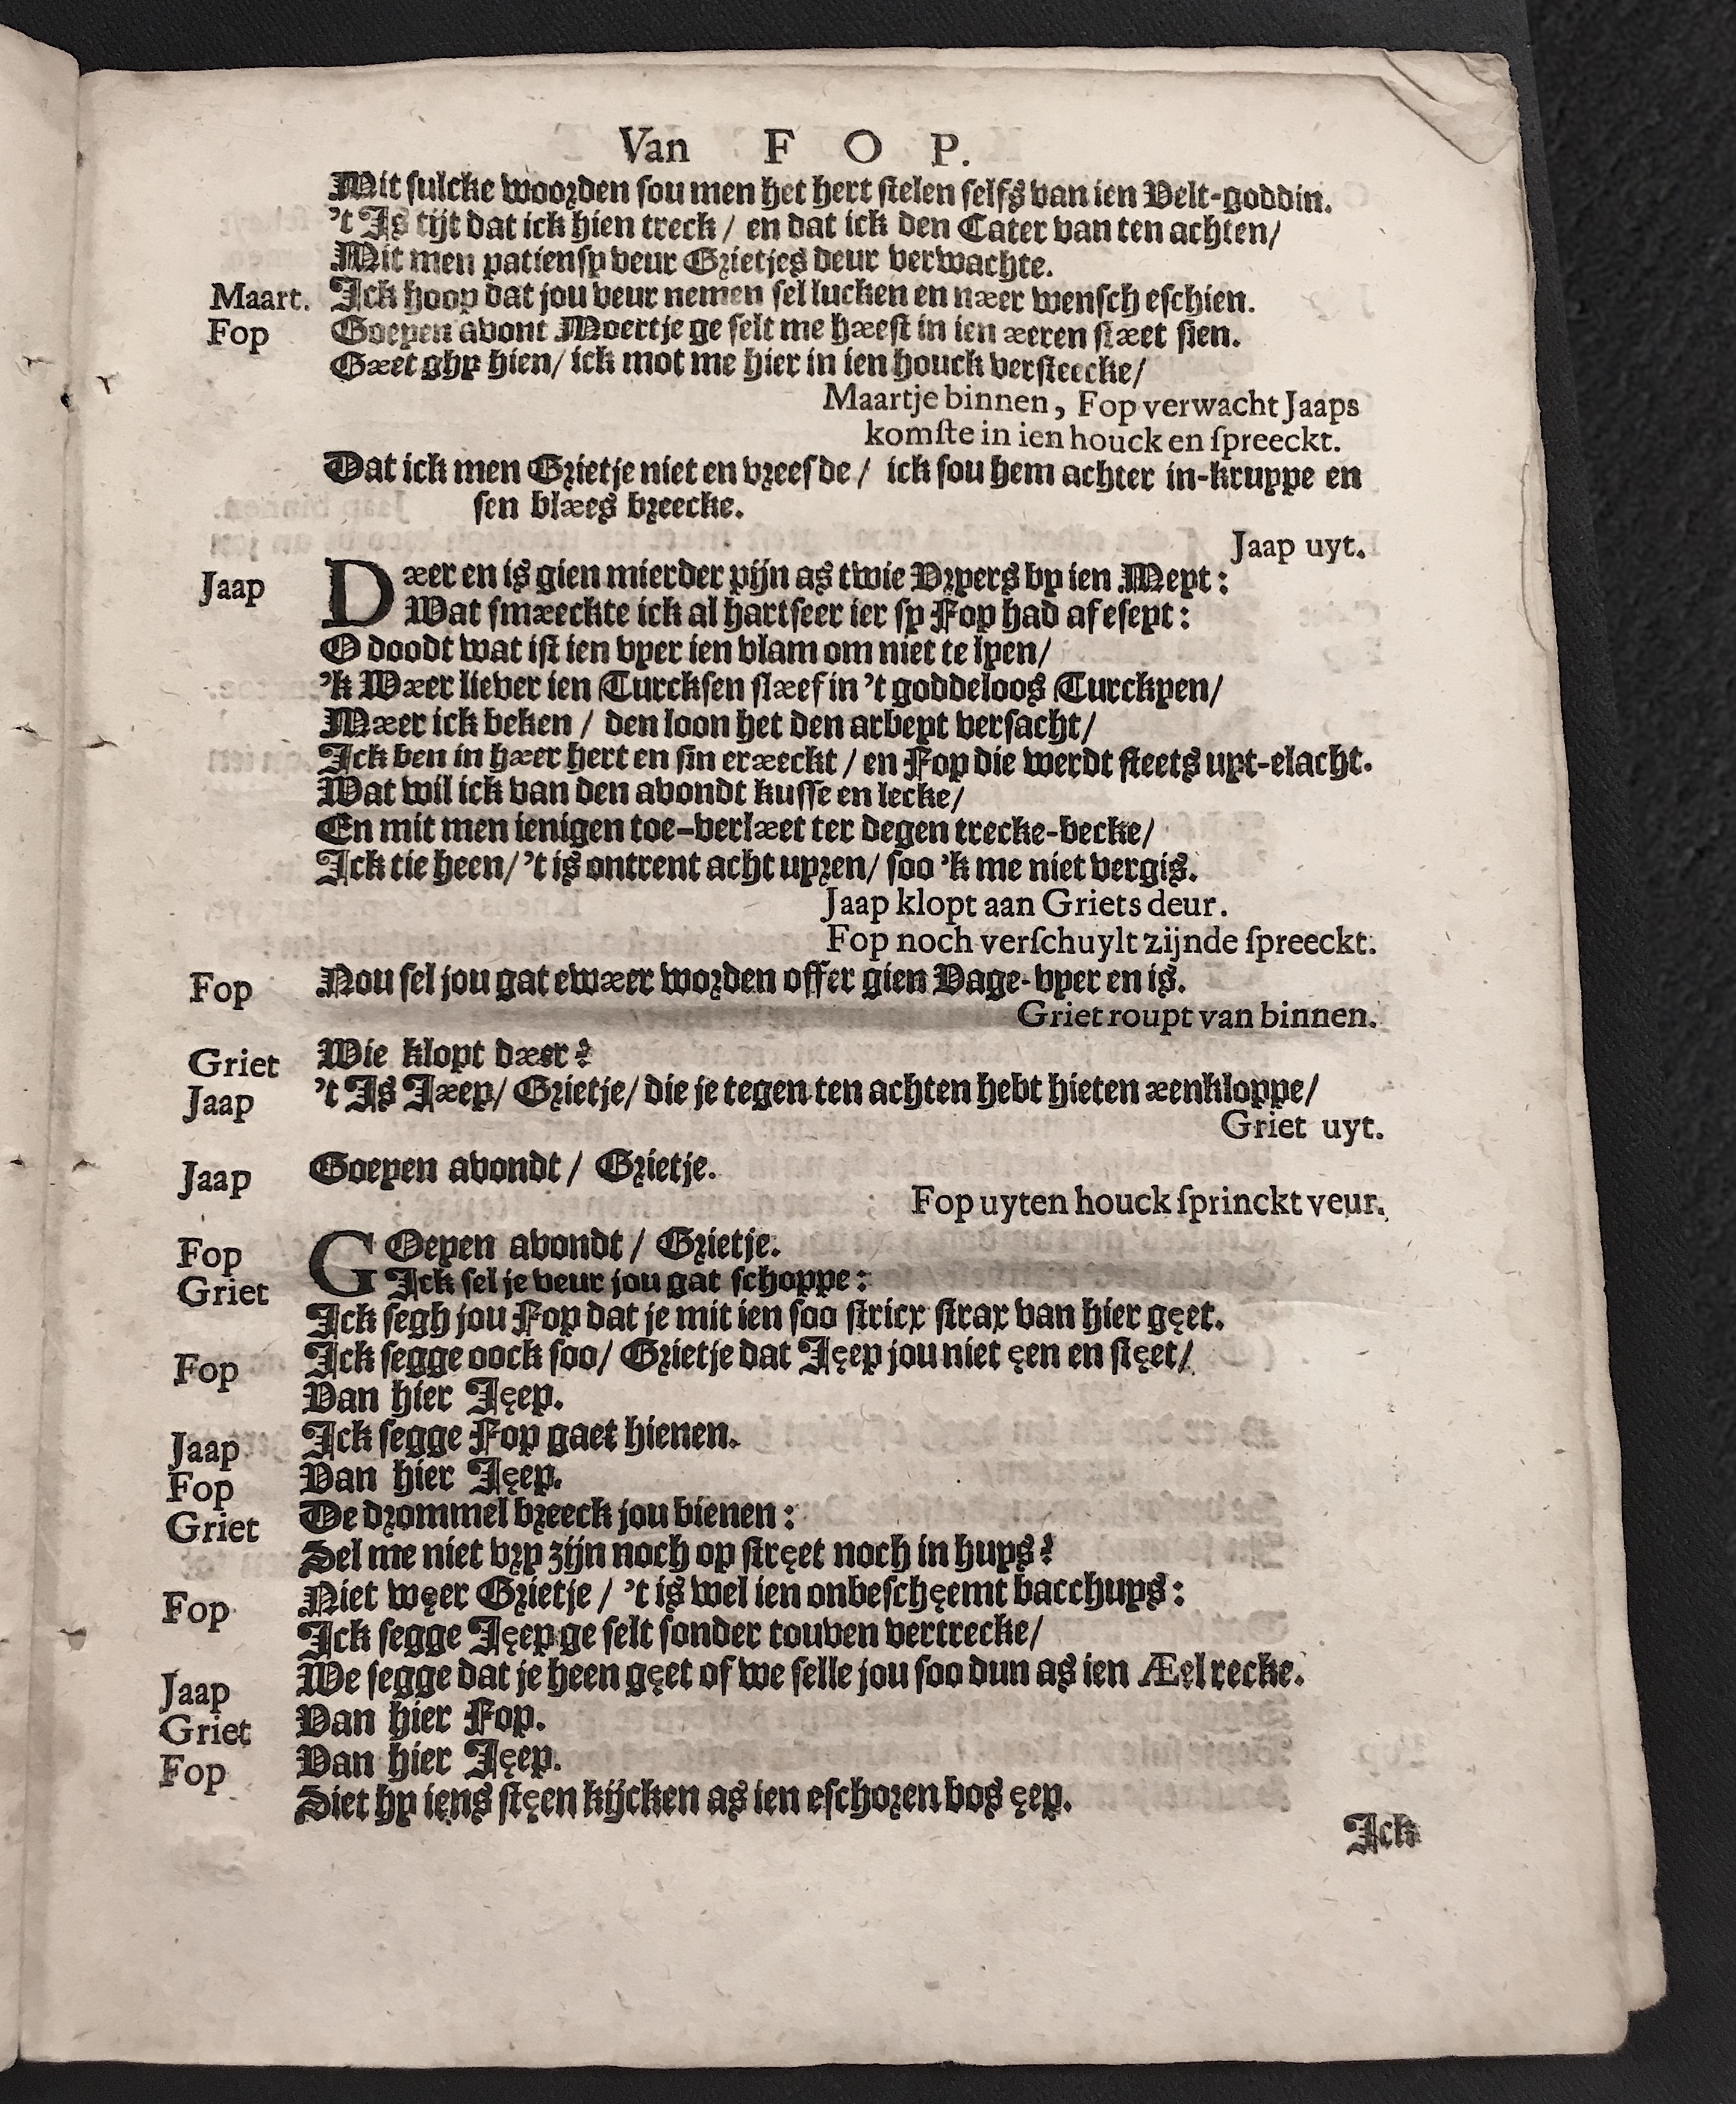 Van F O P.
Mit sulcke woorden sou men het hert stelen selfs van ien Velt-goddin.
't Is tijt dat ick hien treck / en dat ick den Cater van ten achten/
Mit men patiensy veur Grietjes deur verwachte.
Maart. Ick hoop dat jou veur nemen sel lucken en næer wensch eschien.
Fop Goeyen avont Moertje ge selt me hæest in ien æeren stæet sien.
Gæet ghy hien/ ick mot me hier in ien houck versteecke/
Maartje binnen, Fop verwacht Jaaps
komſte in ien houck en ſpreeckt.
Dat ick men Grietje niet en vreesde / ick sou hem achter in-kruppe en
sen blæes breecke.
Jaap uyt.
Jaap Dæer en is gien mierder pijn as twie Vryers by ien Meyt:
Wat smæeckte ick al hartseer ier sy Fop had afeseyt:
O doodt wat ist ien vyer ien vlam om niet te lyen/
'k Wæer liever ien Turcksen slæef in 't goddeloos Turckyen/
Mæer ick beken / den loon het den arbeyt versacht/
Ick ben in hæer hert en sin eræeckt / en Fop die werdt steets uyt-elacht.
Wat wil ick van den avondt kusse en lecke/
En mit men ienigen toe-verlæet ter degen trecke-becke/
Ick tie heen/ 't is ontrent acht uyren/ soo 'k me niet vergis.
Jaap klopt aan Griets deur.
Fop noch verſchuylt zijnde ſpreeckt.
Fop Nou sel jou gat ewær worden offer gien Vage-vyer en is.
Griet roupt van binnen.
Griet Wie klopt dæer?
Jaap 't Is Jæep/ Grietje/ die je tegen ten achten hebt hieten æenkloppe/
Griet uyt.
Jaap Goeyen avondt / Grietje.
Fop uyten houck ſprinckt veur.
Fop GOeyen avondt / Grietje.
Griet Ick sel je veur jou gat schoppe:
Ick segh jou Fop dat je mit ien soo stricx strax van hier gęet.
Fop Ick segge oock soo/ Grietje dat Jęep jou niet ęen en stęet/
Van hier Jęep.
Jaap Ick segge Fop gaet hienen.
Fop Van hier Jęep.
Griet De drommel breeck jou bienen:
Sel me niet vry zijn noch op stręet noch in huys?
Fop Niet węer Grietje / 't is wel ien onbeschęemt bacchuys:
Ick segge Jęep ge selt sonder touven vertrecke/
Jaap We segge dat je heen gęet of we selle jou soo dun as ien Æel recke.
Griet Van hier Fop.
Fop Van hier Jęep.
Siet hy iens stęen kijcken as ien eschoren bos ęep.
Ick